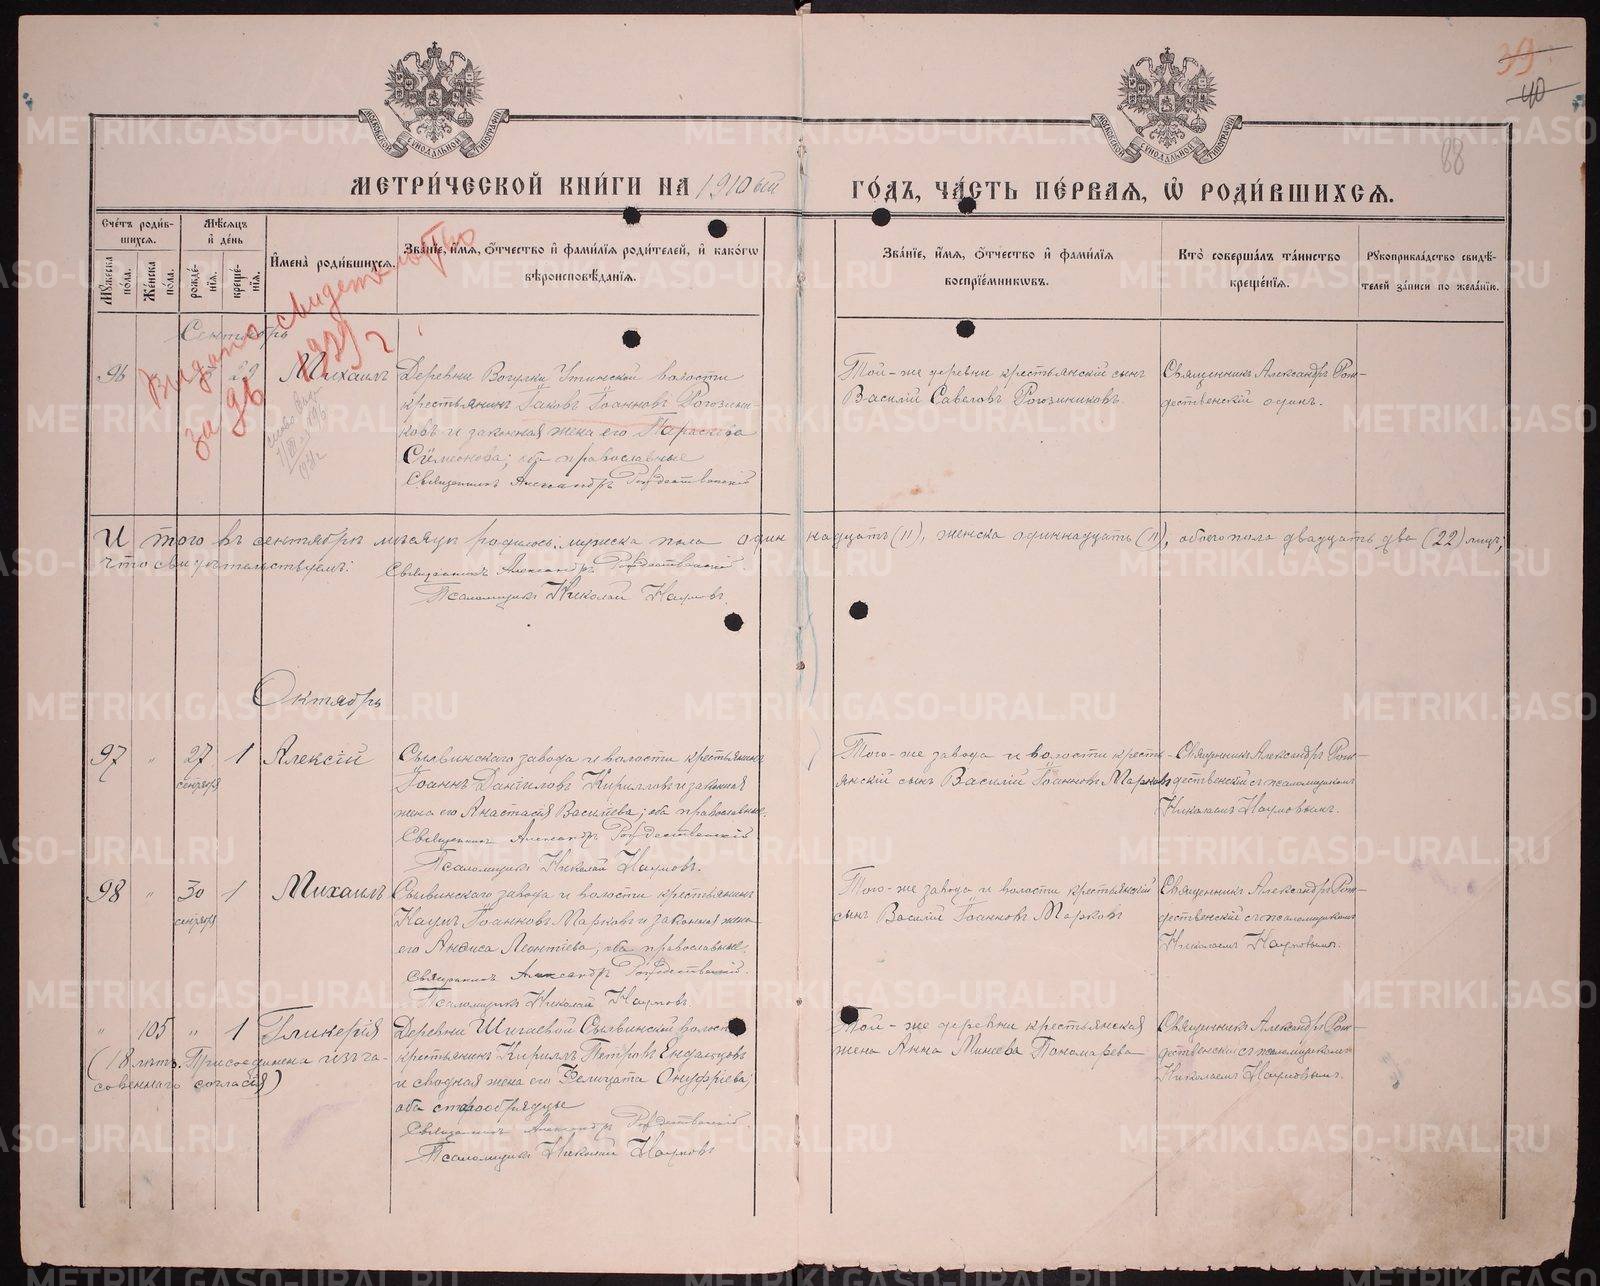 39
40
88
МОСКОВСКОЙ СѴНОДАЛЬНОЙ ТИПОГРАФІИ
МОСКОВСКОЙ СѴНОДАЛЬНОЙ ТИПОГРАФІИ
МЕТРИ́ЧЕСКОЙ КНИ́ГИ НА 1910ый ГО́ДЪ, ЧА́СТЬ ПЕ́РВАЯ, Ѡ҆ РОДИ́ВШИХСЯ.
Сче́тъ роди́в-
шихся.
Му́жеска по́ла.
Же́нска по́ла.
Мѣ́сяцъ и҆ де́нь
рожде́-
нїя.
креще́-
нїя.
И҆мена̀ роди́вшихся.
Зва́нїе, и҆́мя, ѻ҆́тчество и҆ фами́лїя роди́телей, и҆ како́гѡ
вѣроисповѣ́данїя.
Зва́нїе, и҆́мя, ѻ҆́тчество и҆ фами́лїя
воспрїе́мниковъ.
Кто̀ соверша́лъ та́инство
креще́нїя.
Рꙋкоприкла́дство свидѣ́-
телей за́писи по жела́нїю.
Выдано свидетельство
за 96 1929 г
Сентябрь
96
29
Михаилъ
Деревни Вогулки Уткинской волости
крестьянинъ Іаковъ Іоанновъ Рогозинни-
ковъ и законная жена его Параскева
Симеонова; оба православные
Священникъ Александръ Рождественскій
Той-же деревни крестьянскій сынъ
Василій Савеловъ Рогозинниковъ.
Священникъ Александръ Рож-
дественскій одинъ.
Итого въ сентябрѣ мѣсяцѣ родилось мужска пола одиннадцать (11), женска одиннадцать (11), обоего пола двадцать два (22) лицъ,
что свидѣтельствуемъ: Священникъ Александръ Рождественскій.
Псаломщикъ Николай Наумовъ.
Октябрь
97 " 27 1 Алексій
сентября
Сылвинскаго завода и волости крестьянинъ
Іоаннъ Даніиловъ Кирилловъ и законная
жена его Анастасія Василіева; оба православные.
Священникъ Александръ Рождественскій.
Псаломщикъ Николай Наумовъ.
Того-же завода и волости кресть-
янскій сынъ Василій Іоанновъ Марковъ
Священникъ Александръ Рож-
дественскій съ псаломщикомъ
Николаемъ Наумовымъ.
98 " 30 1 Михаилъ
сентября
Сылвинскаго завода и волости крестьянинъ
Наумъ Іоанновъ Марковъ и законная жена
его Анфиса Леонтіева; оба православные.
Священникъ Александръ Рождественскій.
Псаломщикъ Николай Наумовъ.
Того-же завода и волости крестьянскій
сынъ Василій Іоанновъ Марковъ
Священникъ Александръ Рож-
дественскій съ псаломщикомъ
Николаемъ Наумовымъ.
" 105 " 1 Гликерія
(18 лѣтъ. Присоединена изъ ча-
совеннаго согласія)
Деревни Шигаевой Сылвинской волости
крестьянинъ Кириллъ Петровъ Ендальцовъ
и сводная жена его Фелицата Онуфріева;
оба старообрядцы
Священникъ Александръ Рождественскій.
Псаломщикъ Николай Наумовъ
Той-же деревни крестьянская
жена Анна Минеева Пономарева
Священникъ Александръ Рож-
дественскій съ псаломщикомъ
Николаемъ Наумовымъ.
METRIKI.GASO-URAL.RU